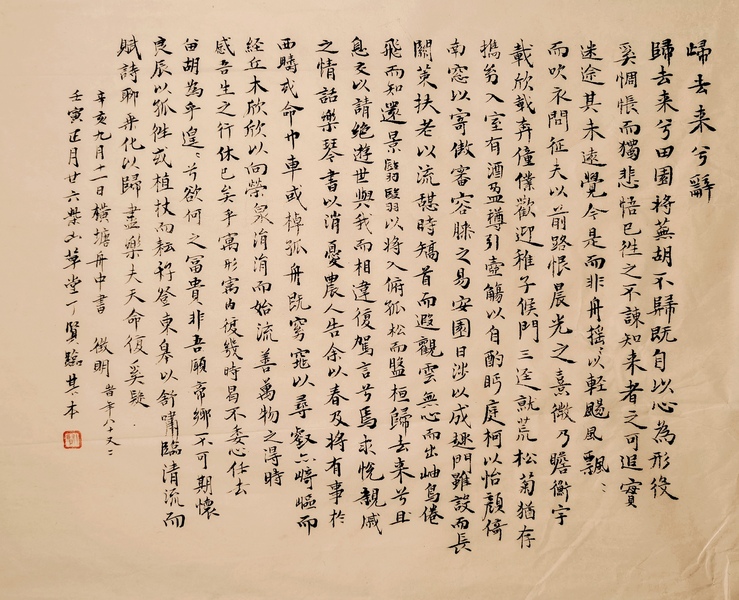 歸去来兮辭
歸去来兮田園將蕪胡不歸既自以心為形役
奚惆悵而獨悲悟已往之不諫知来者之可追實
迷途其未遠覺今是而非舟搖以輕颺風飄
而吹衣問征夫以前路恨晨光之熹微乃瞻衡宇
載欣載奔僮僕歡迎稚子候門三逕就荒松菊猶存
攜幼入室有酒盈樽引壺觴以自酌眄庭柯以怡顏倚
南窓以寄傲審容膝之易安園日涉以成趣門雖設而長
關策扶老以流憩時矯首而遐觀雲無心而出岫鳥倦
飛而知還景翳翳以將入撫孤松而盤桓歸去来兮且
息交以請絕遊世與我而相違復駕言兮焉求悅親戚
之情話樂琴書以消憂農人告余以春及將有事於
西疇或命巾車或棹孤舟既窈窕以尋壑亦崎嶇而
經丘木欣欣以向榮泉涓涓而始流善萬物之得時
感吾生之行休已矣乎寓形宇內復幾時曷不委心任去
留胡為乎遑遑兮欲何之富貴非吾願帝鄉不可期懷
良辰以孤往或植杖而耘耔登東皋以舒嘯臨清流而
賦詩聊乘化以歸盡樂夫天命復奚疑
辛亥九月十一日橫塘舟中書 徵明 昔年八又二
壬寅正月廿六柴山草堂丁賢臨其本